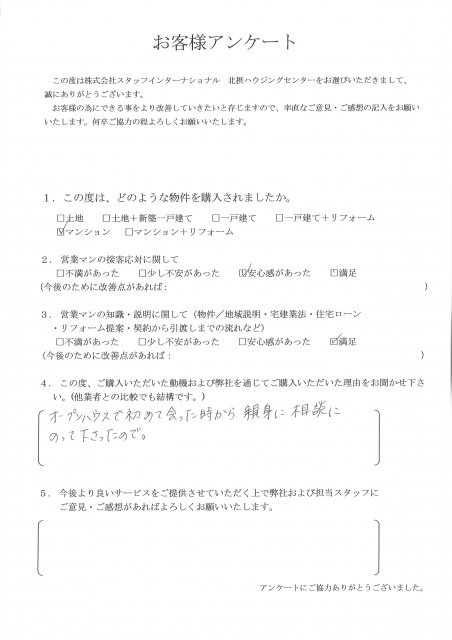 お客様アンケート
この度は株式会社スタッフインターナショナル 北摂ハウジングセンターをお選びいただきまして、
誠にありがとうございます。
お客様の為にできる事をより改善していきたいと存じますので、率直なご意見・ご感想の記入をお願い
いたします。何卒ご協力の程よろしくお願いいたします。
1．この度は、どのような物件を購入されましたか。
□土地 □土地＋新築一戸建て □一戸建て □一戸建て＋リフォーム
☑マンション □マンション＋リフォーム
2．営業マンの接客応対に関して
□不満があった □少し不安があった ☑安心感があった □満足
(今後のために改善点があれば： )
3．営業マンの知識・説明に関して（物件／地域説明・宅建業法・住宅ローン
・リフォーム提案・契約から引渡しまでの流れなど）
□不満があった □少し不安があった □安心感があった ☑満足
(今後のために改善点があれば： )
4．この度、ご購入いただいた動機および弊社を通じてご購入いただいた理由をお聞かせ下さ
い。(他業者との比較でも結構です。)
オープンハウスで初めて会った時から 親身に 相談に
のって下さったので。
5．今後より良いサービスをご提供させていただく上で弊社および担当スタッフに
ご意見・ご感想があればよろしくお願いいたします。
アンケートにご協力ありがとうございました。